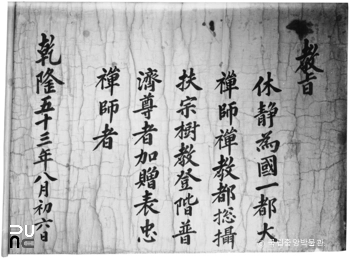 教旨
休静為國一都大
禪師禪教都摠攝
扶宗樹教登階普
濟尊者加贈表忠
禪師者
乾隆五十三年八月初六日
국립중앙박물관